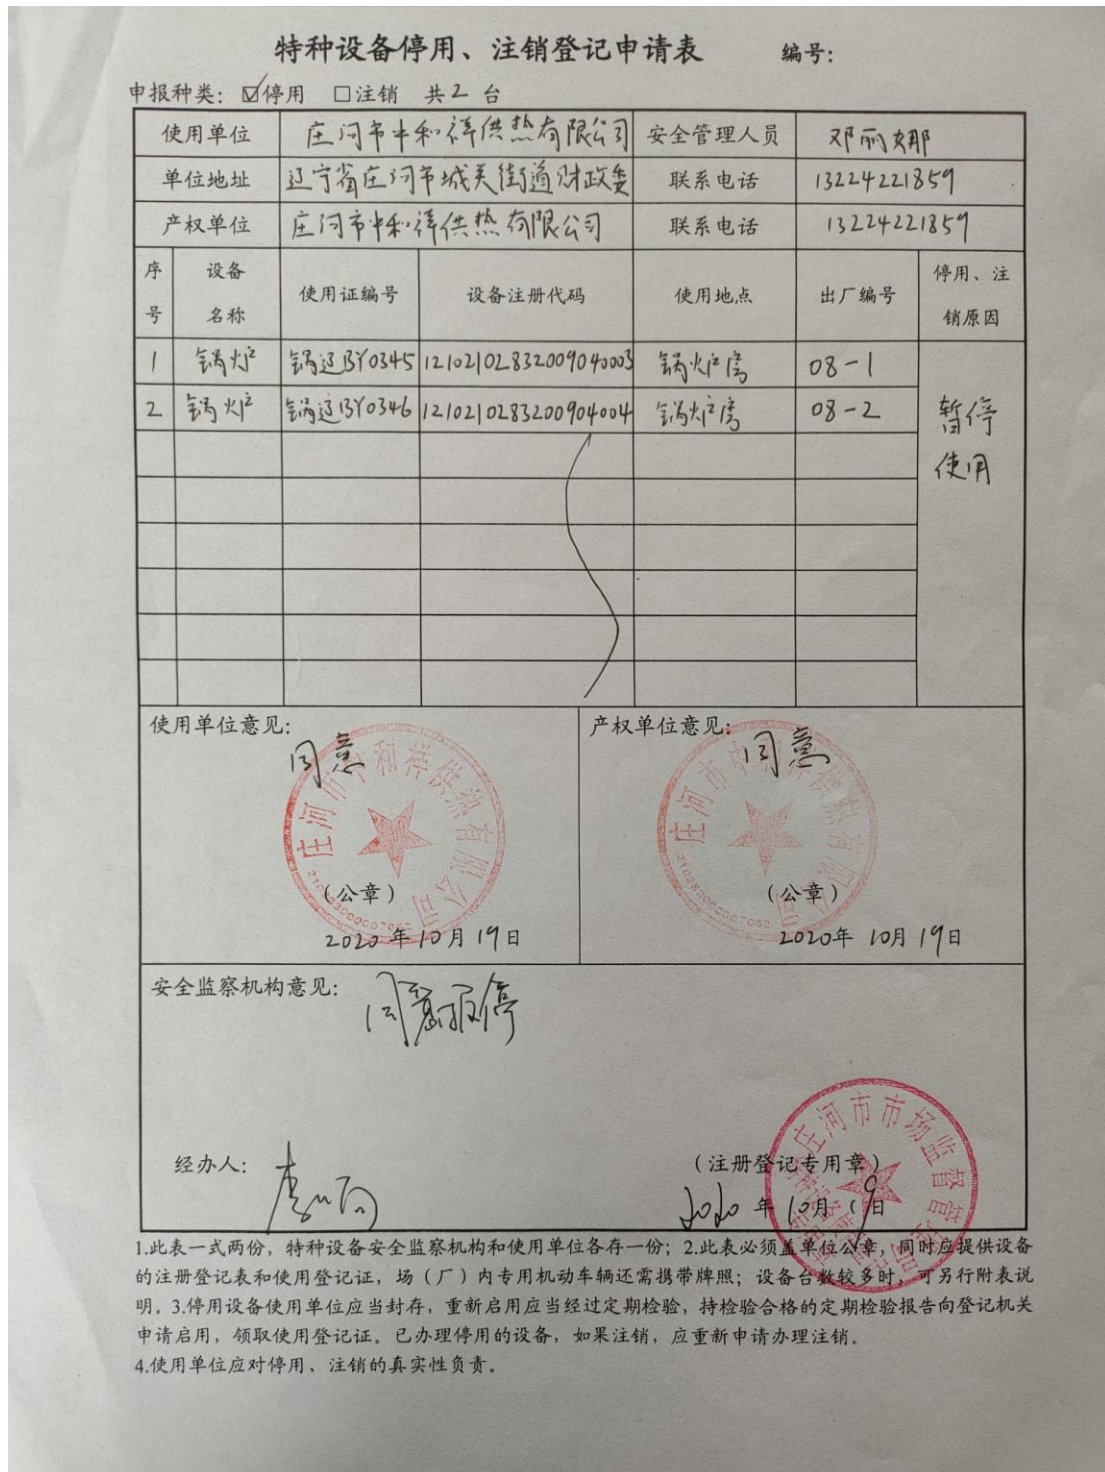 特种设备停用、注销登记申请表 编号：
申报种类：☑停用 □注销 共2台
使用单位 庄河市中和祥供热有限公司 安全管理人员 邓丽娜
单位地址 辽宁省庄河市城关街道财政委 联系电话 13224221859
产权单位 庄河市中和祥供热有限公司 联系电话 13224221859
序号 设备名称 使用证编号 设备注册代码 使用地点 出厂编号 停用、注销原因
1 锅炉 锅辽BY0345 12102102832009040003 锅炉房 08-1
2 锅炉 锅辽BY0346 1210210283200904004 锅炉房 08-2
暂停
使用
使用单位意见： 产权单位意见：
同意 同意
庄河市中和祥供热有限公司 庄河市中和祥供热有限公司
（公章） （公章）
2020年10月19日 2020年10月19日
安全监察机构意见：
同意报停
庄河市市场监督管理局
经办人： （注册登记专用章）
2020年10月19日
1.此表一式两份，特种设备安全监察机构和使用单位各存一份；2.此表必须盖单位公章，同时应提供设备
的注册登记表和使用登记证，场（厂）内专用机动车辆还需携带牌照；设备台数较多时，可另行附表说
明。3.停用设备使用单位应当封存，重新启用应当经过定期检验，持检验合格的定期检验报告向登记机关
申请启用，领取使用登记证。已办理停用的设备，如果注销，应重新申请办理注销。
4.使用单位应对停用、注销的真实性负责。